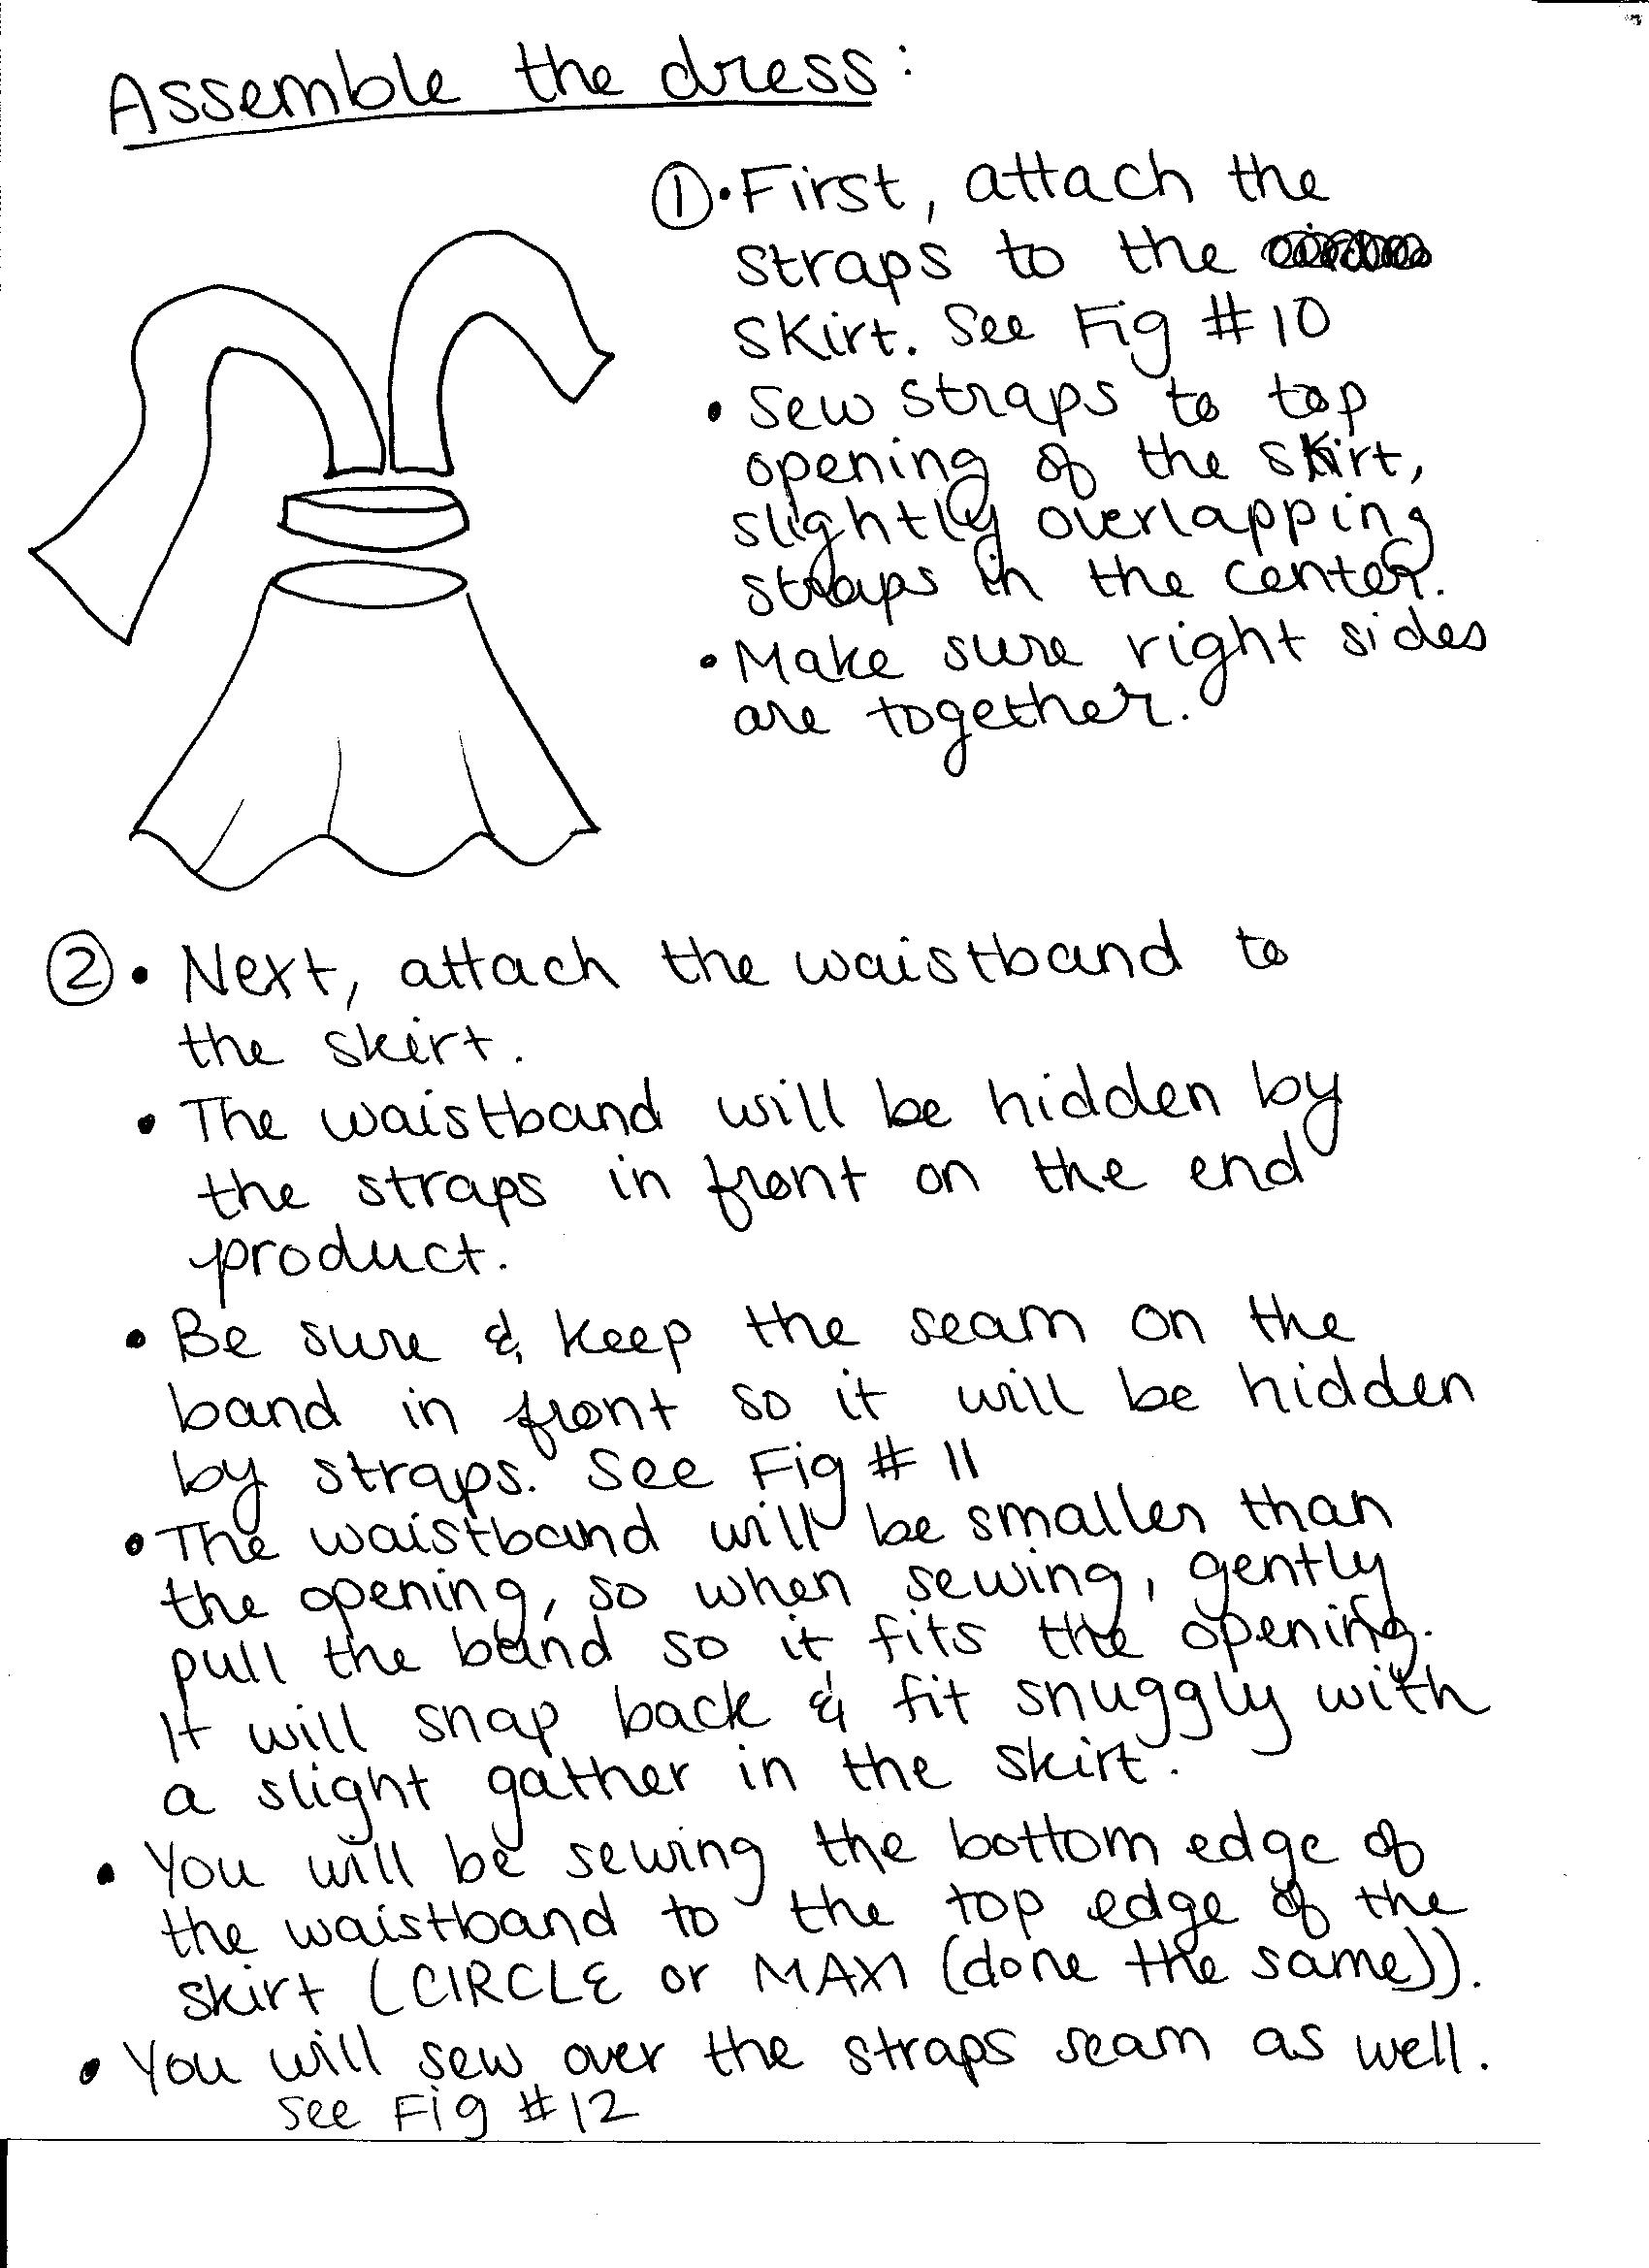 Assemble the dress:
① • First, attach the
straps to the
skirt. See Fig #10
• Sew straps to top
opening of the skirt,
slightly overlapping
straps in the center.
• Make sure right sides
are together.
② • Next, attach the waistband to
the skirt.
• The waistband will be hidden by
the straps in front on the end
product.
• Be sure & keep the seam on the
band in front so it will be hidden
by straps. See Fig # 11
• The waistband will be smaller than
the opening, so when sewing, gently
pull the band so it fits the opening.
It will snap back & fit snuggly with
a slight gather in the skirt.
• You will be sewing the bottom edge of
the waistband to the top edge of the
skirt (CIRCLE or MAXI (done the same)).
• You will sew over the straps seam as well.
See Fig #12